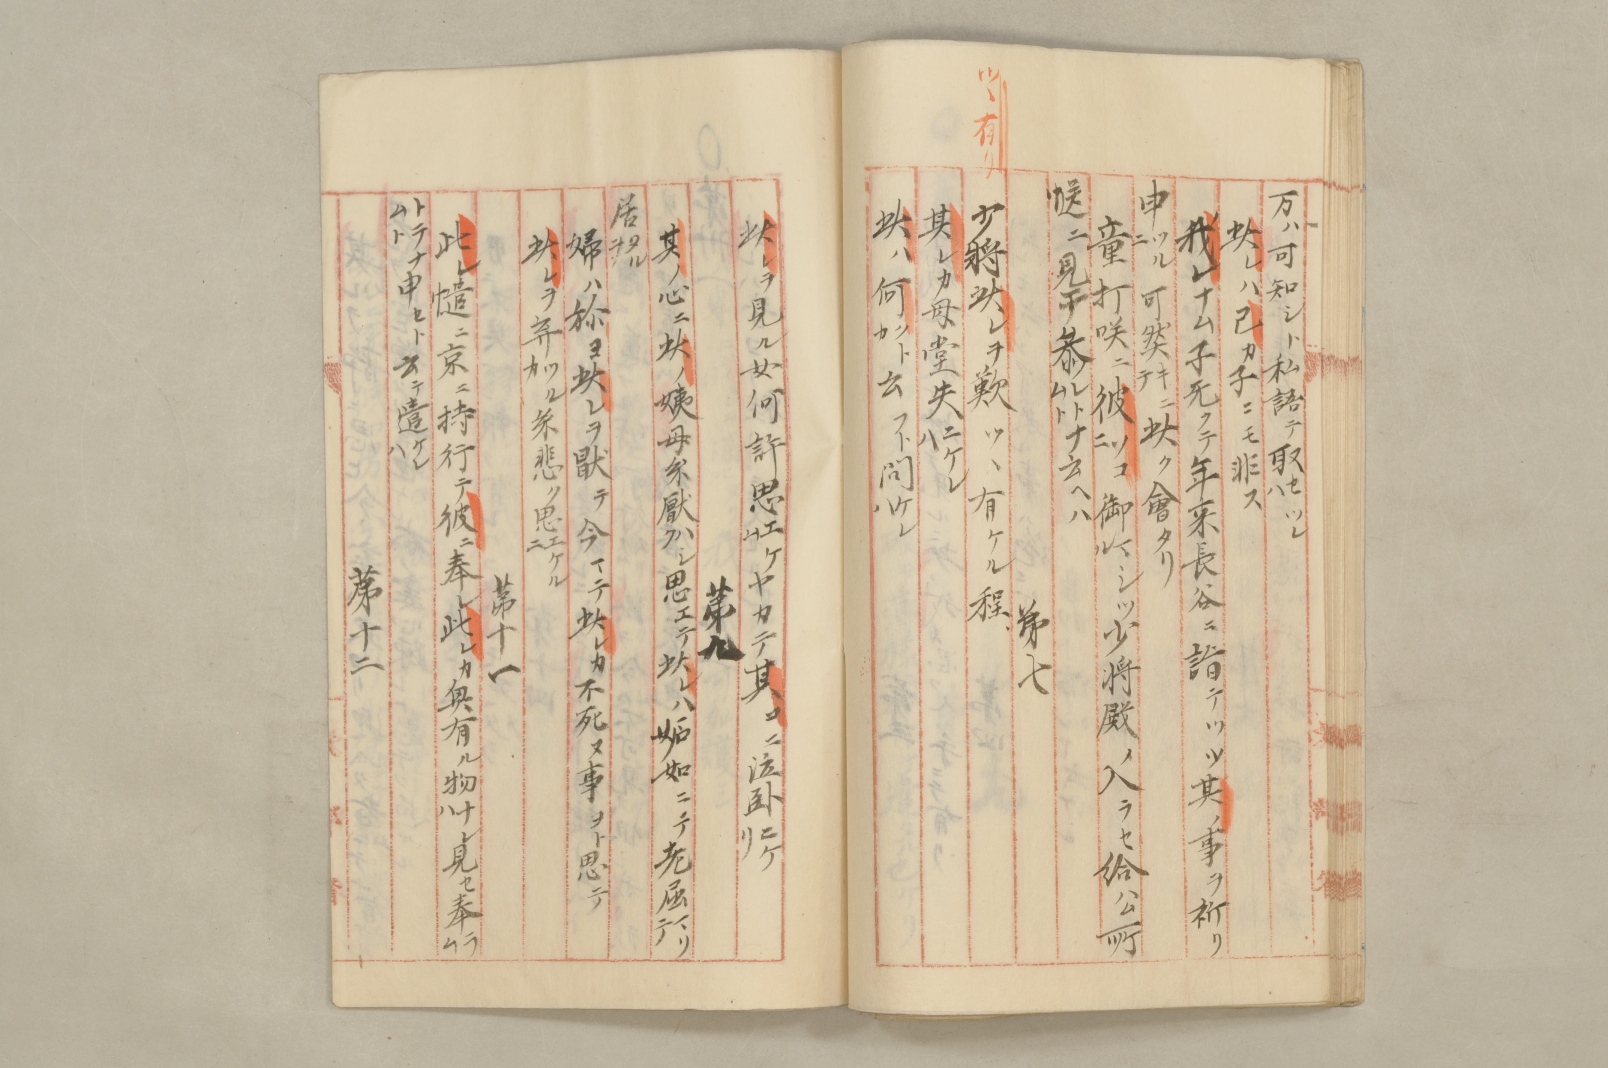 万ハ可知シト私語テ取セツレハ
此レハ己カ子ニモ非ス
我レナム子死クテ年来長谷ニ詣テツツ其ノ事ヲ祈リ
申ツルニ可然キニテ此ク會タリ
童打咲ニ彼ニツコ御ルマシツ少将殿ノ入ラセ給ハム所
咲ニ見テ参レトナムト云ヘハ
第七
ツヽ有リ
少將此レヲ歎ツヽ有ケル程、
其レカ母堂失ニケレハ
此ハ何ントカ云フト問ケレハ
此レヲ見ル女何許思エケムヤカテ其コニ泣臥ニケリ
第九
其ノ心ニ此ノ姨母糸厭ハシク思エテ此レハ妬如ニテ老屈マリテ
居タルヲ
婦ハ弥ヨ此レヲ猒テ今マテ此レカ不死ヌ事ヲト思テ
此レヲ弃ツルカ糸悲ク思エケルニ
第十一
此レ慥ニ京ニ持行テ彼ニ奉レ此レカ奥有ル物ハナト見セ奉ラム
トテナムト申セト云テ遣ケレハ
第十二